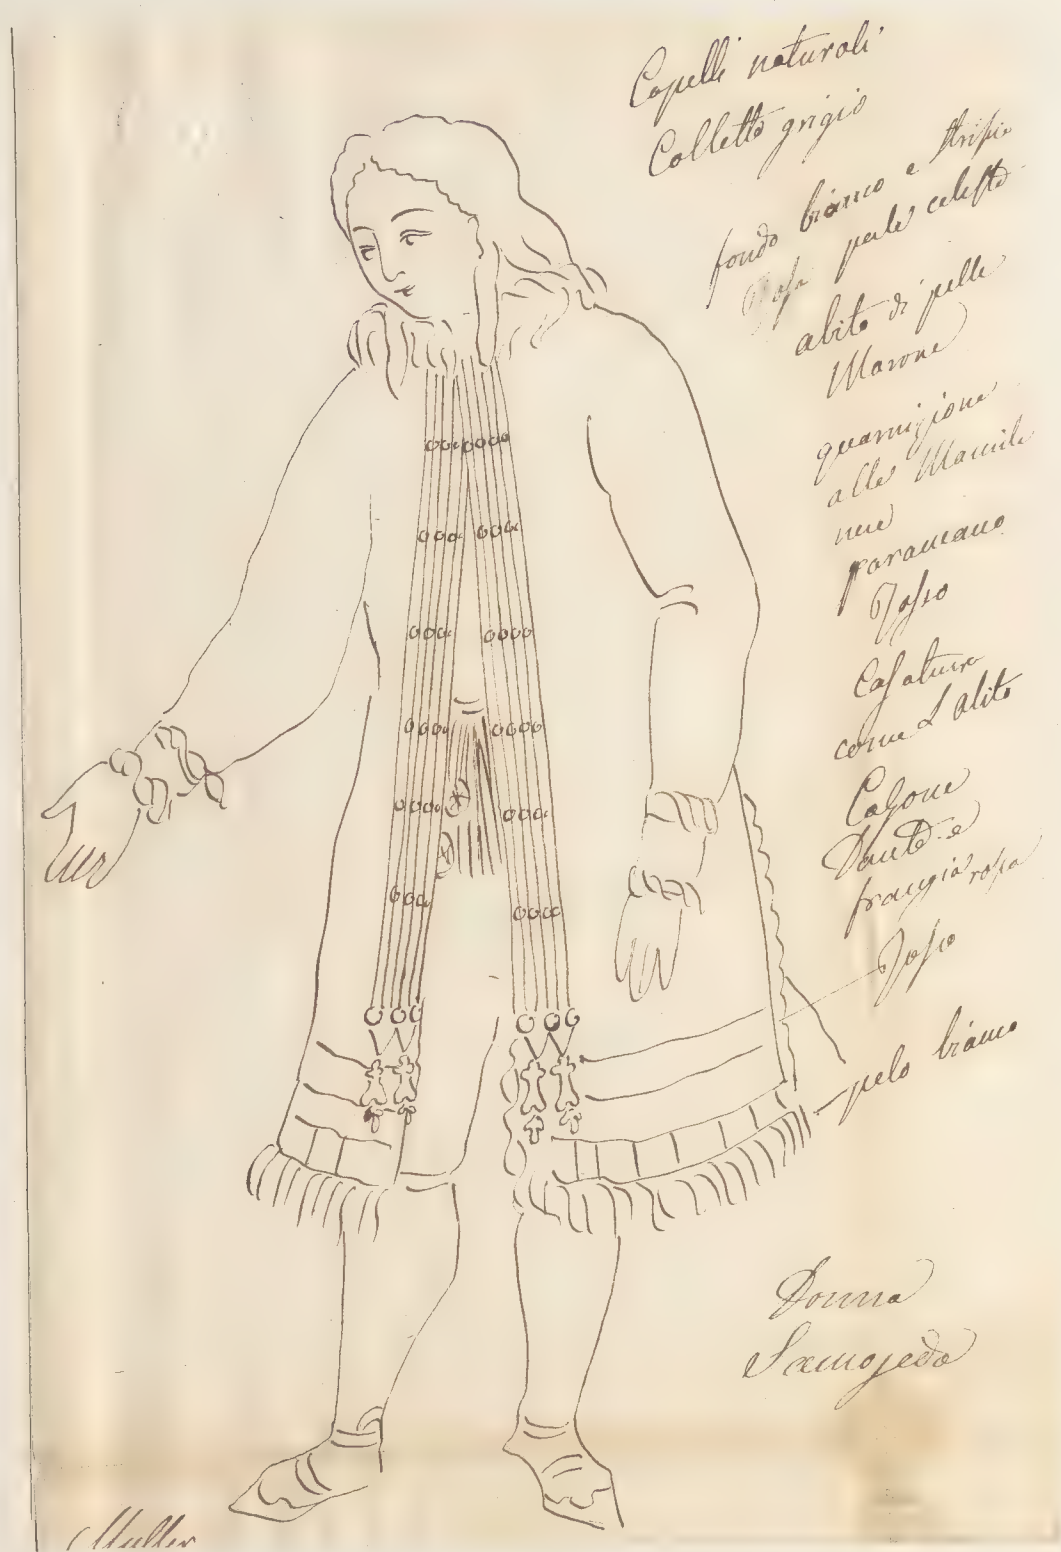 Capelli naturali
Colletto grigio
fondo bianco e strisia
rosa perle celeste
abito di pelle
Marone
guarnizione
alle Manile
nere
paramano
Rosso
Casatura
come L abito
Calsone
Dante e
frangia rossa
Rosso
pelo bianco
Donna
Samojeda
Muller